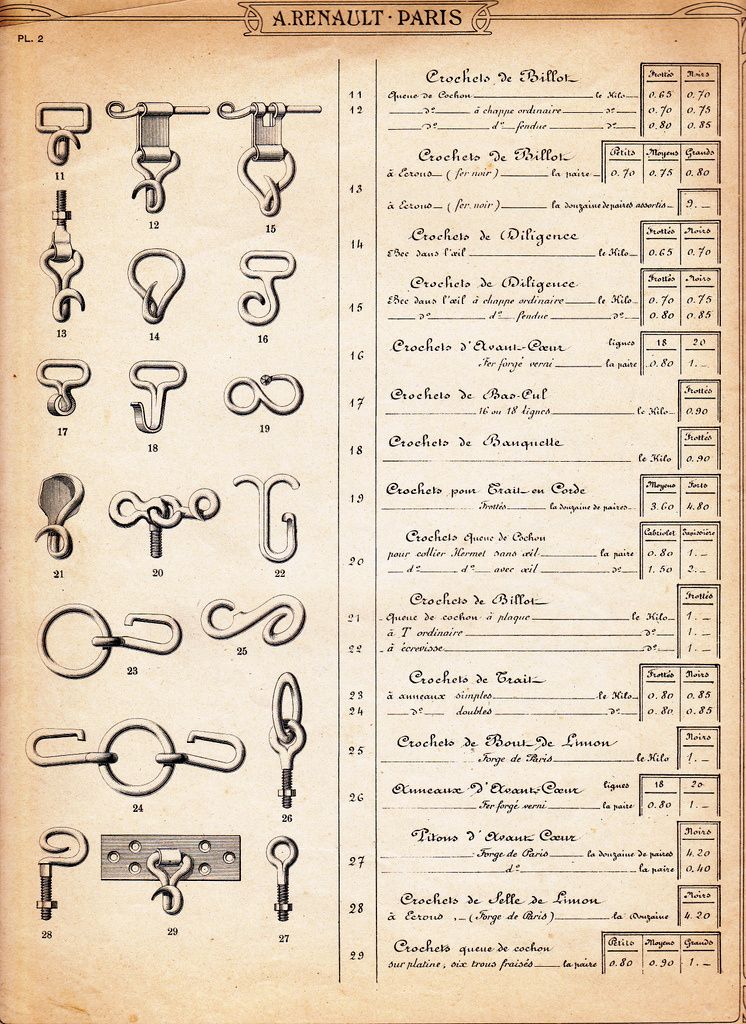 A. RENAULT · PARIS
PL. 2
11
12
15
13
14
16
17
18
19
21
20
22
23
25
24
26
28
29
27
Crochets de Billot Frottés Noirs
11 Queue de Cochon le Kilo 0.65 0.70
12 d° à chappe ordinaire d° 0.70 0.75
d° d° fendue d° 0.80 0.85
Crochets de Billot Petits Moyens Grands
à Ecrous (fer noir) la paire 0.70 0.75 0.80
13
à Ecrous (fer noir) la douzaine de paires assorties 9._
Crochets de Diligence Frottés Noirs
14 Bec dans l'œil le Kilo 0.65 0.70
Crochets de Diligence Frottés Noirs
Bec dans l'œil à chappe ordinaire le Kilo 0.70 0.75
15 d° d° fendue d° 0.80 0.85
Crochets d'Avant-Cœur lignes 18 20
16 Fer forgé verni la paire 0.80 1._
Crochets de Bas-Cul Frottés
17 16 ou 18 lignes le Kilo 0.90
Crochets de Banquette Frottés
18 le Kilo 0.90
Crochets pour Trait en Corde Moyens Forts
19 Frottés la douzaine de paires 3.60 4.80
Crochets Queue de Cochon Cabriolet Tapissière
pour collier Hermet sans œil la paire 0.80 1._
20 d° d° avec œil d° 1.50 2._
Crochets de Billot Frottés
21 Queue de cochon à plaque le Kilo 1._
à T ordinaire d° 1._
22 à écrevisse 1._
Crochets de Trait Frottés Noirs
23 à anneaux simples le Kilo 0.80 0.85
24 d° doubles d° 0.80 0.85
Crochets de Bout de Limon Noirs
25 Forge de Paris le Kilo 1._
Anneaux d'Avant-Cœur lignes 18 20
26 Fer forgé verni la paire 0.80 1._
Pitons d'Avant Cœur Noirs
27 Forge de Paris la douzaine de paires 4.20
d° la paire 0.40
Crochets de Selle de Limon Noirs
28 à Ecrous (Forge de Paris) la Douzaine 4.20
Crochets queue de cochon Petits Moyens Grands
29 sur platine, six trous fraisés la paire 0.80 0.90 1._